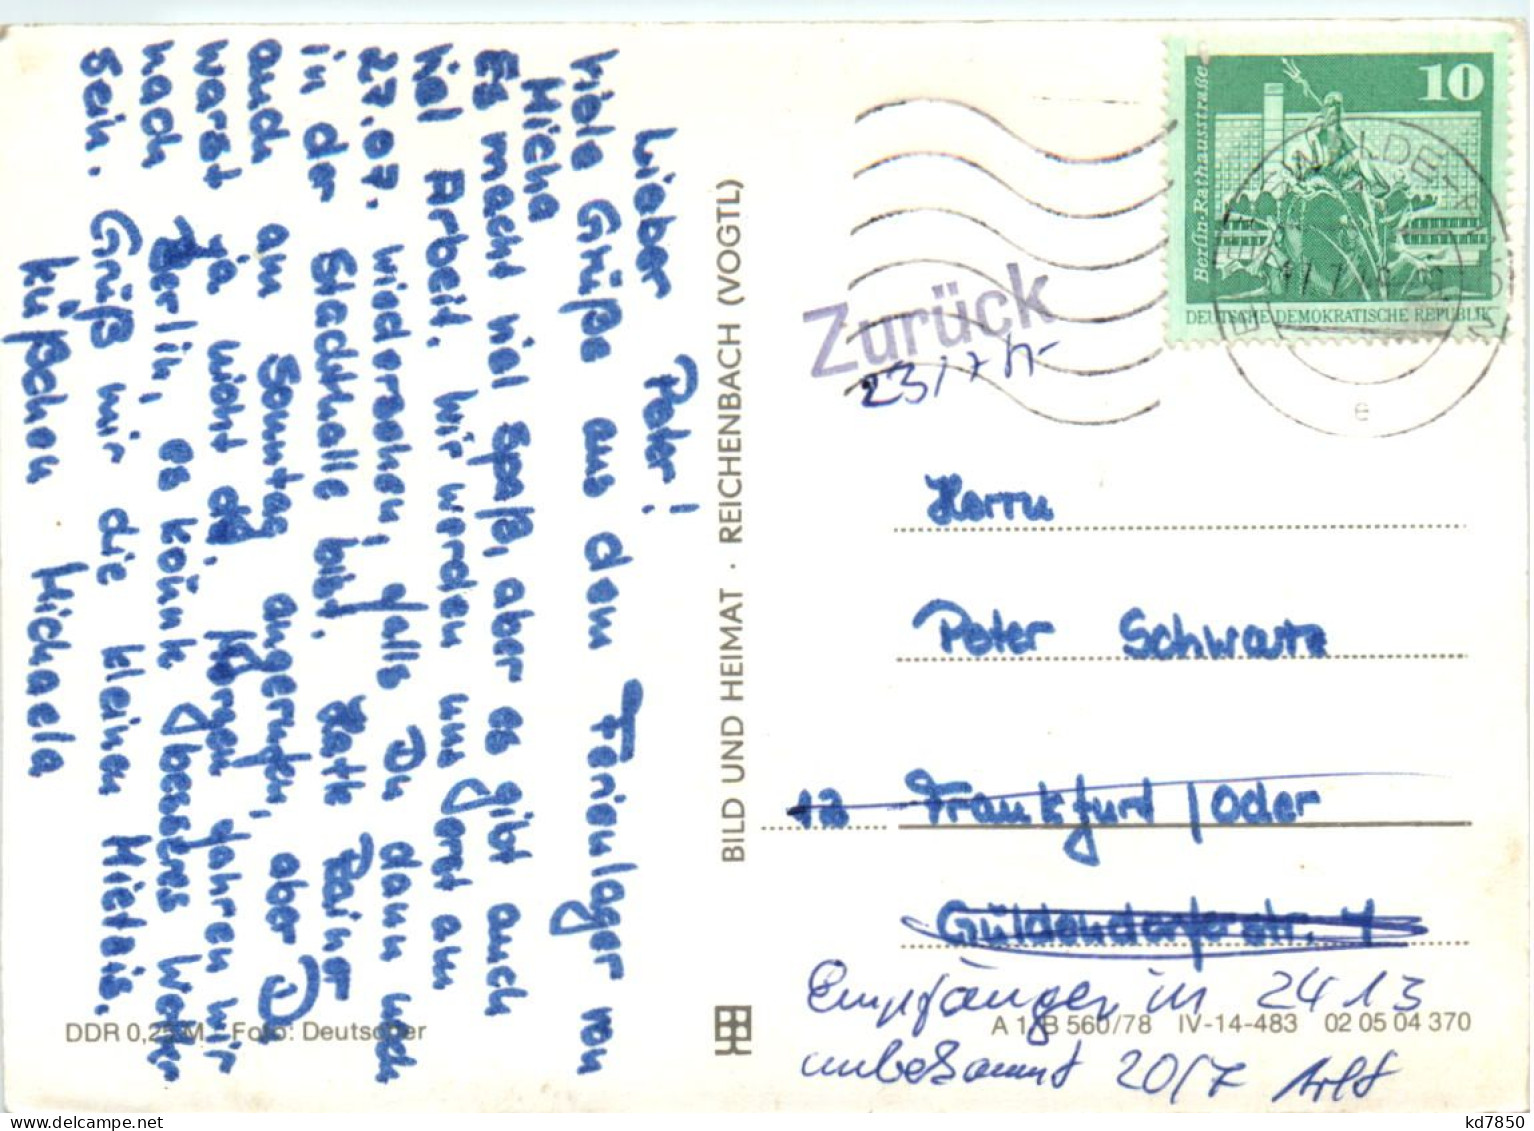 Lieber Peter!
Viele Grüße aus dem Ferienlager von
Micha
Es macht viel Spaß, aber es gibt auch
viel Arbeit. Wir werden uns erst am
27.07. wiedersehen, falls Du dann noch
in der Stadthalle bist. Hatte Rainer
auch am Sonntag angerufen, aber D
warst ja nicht da. Morgen fahren wir
nach Berlin, es könnte besseres Wetter
sein. Grüß mir die kleinen
Küßchen Michaela
BILD UND HEIMAT · REICHENBACH (VOGTL)
10
Berlin-Rathausstraße
DEUTSCHE DEMOKRATISCHE REPUBLIK
Zurück
23/7
e
Herrn
Peter Schwarz
12 Frankfurt / Oder
Güldendorferstr. 4
Empfänger in 24 13
unbekannt 20/7
DDR 0,25 M Foto: Deutscher
A 1/B 560/78 IV-14-483 02 05 04 370
kd7850